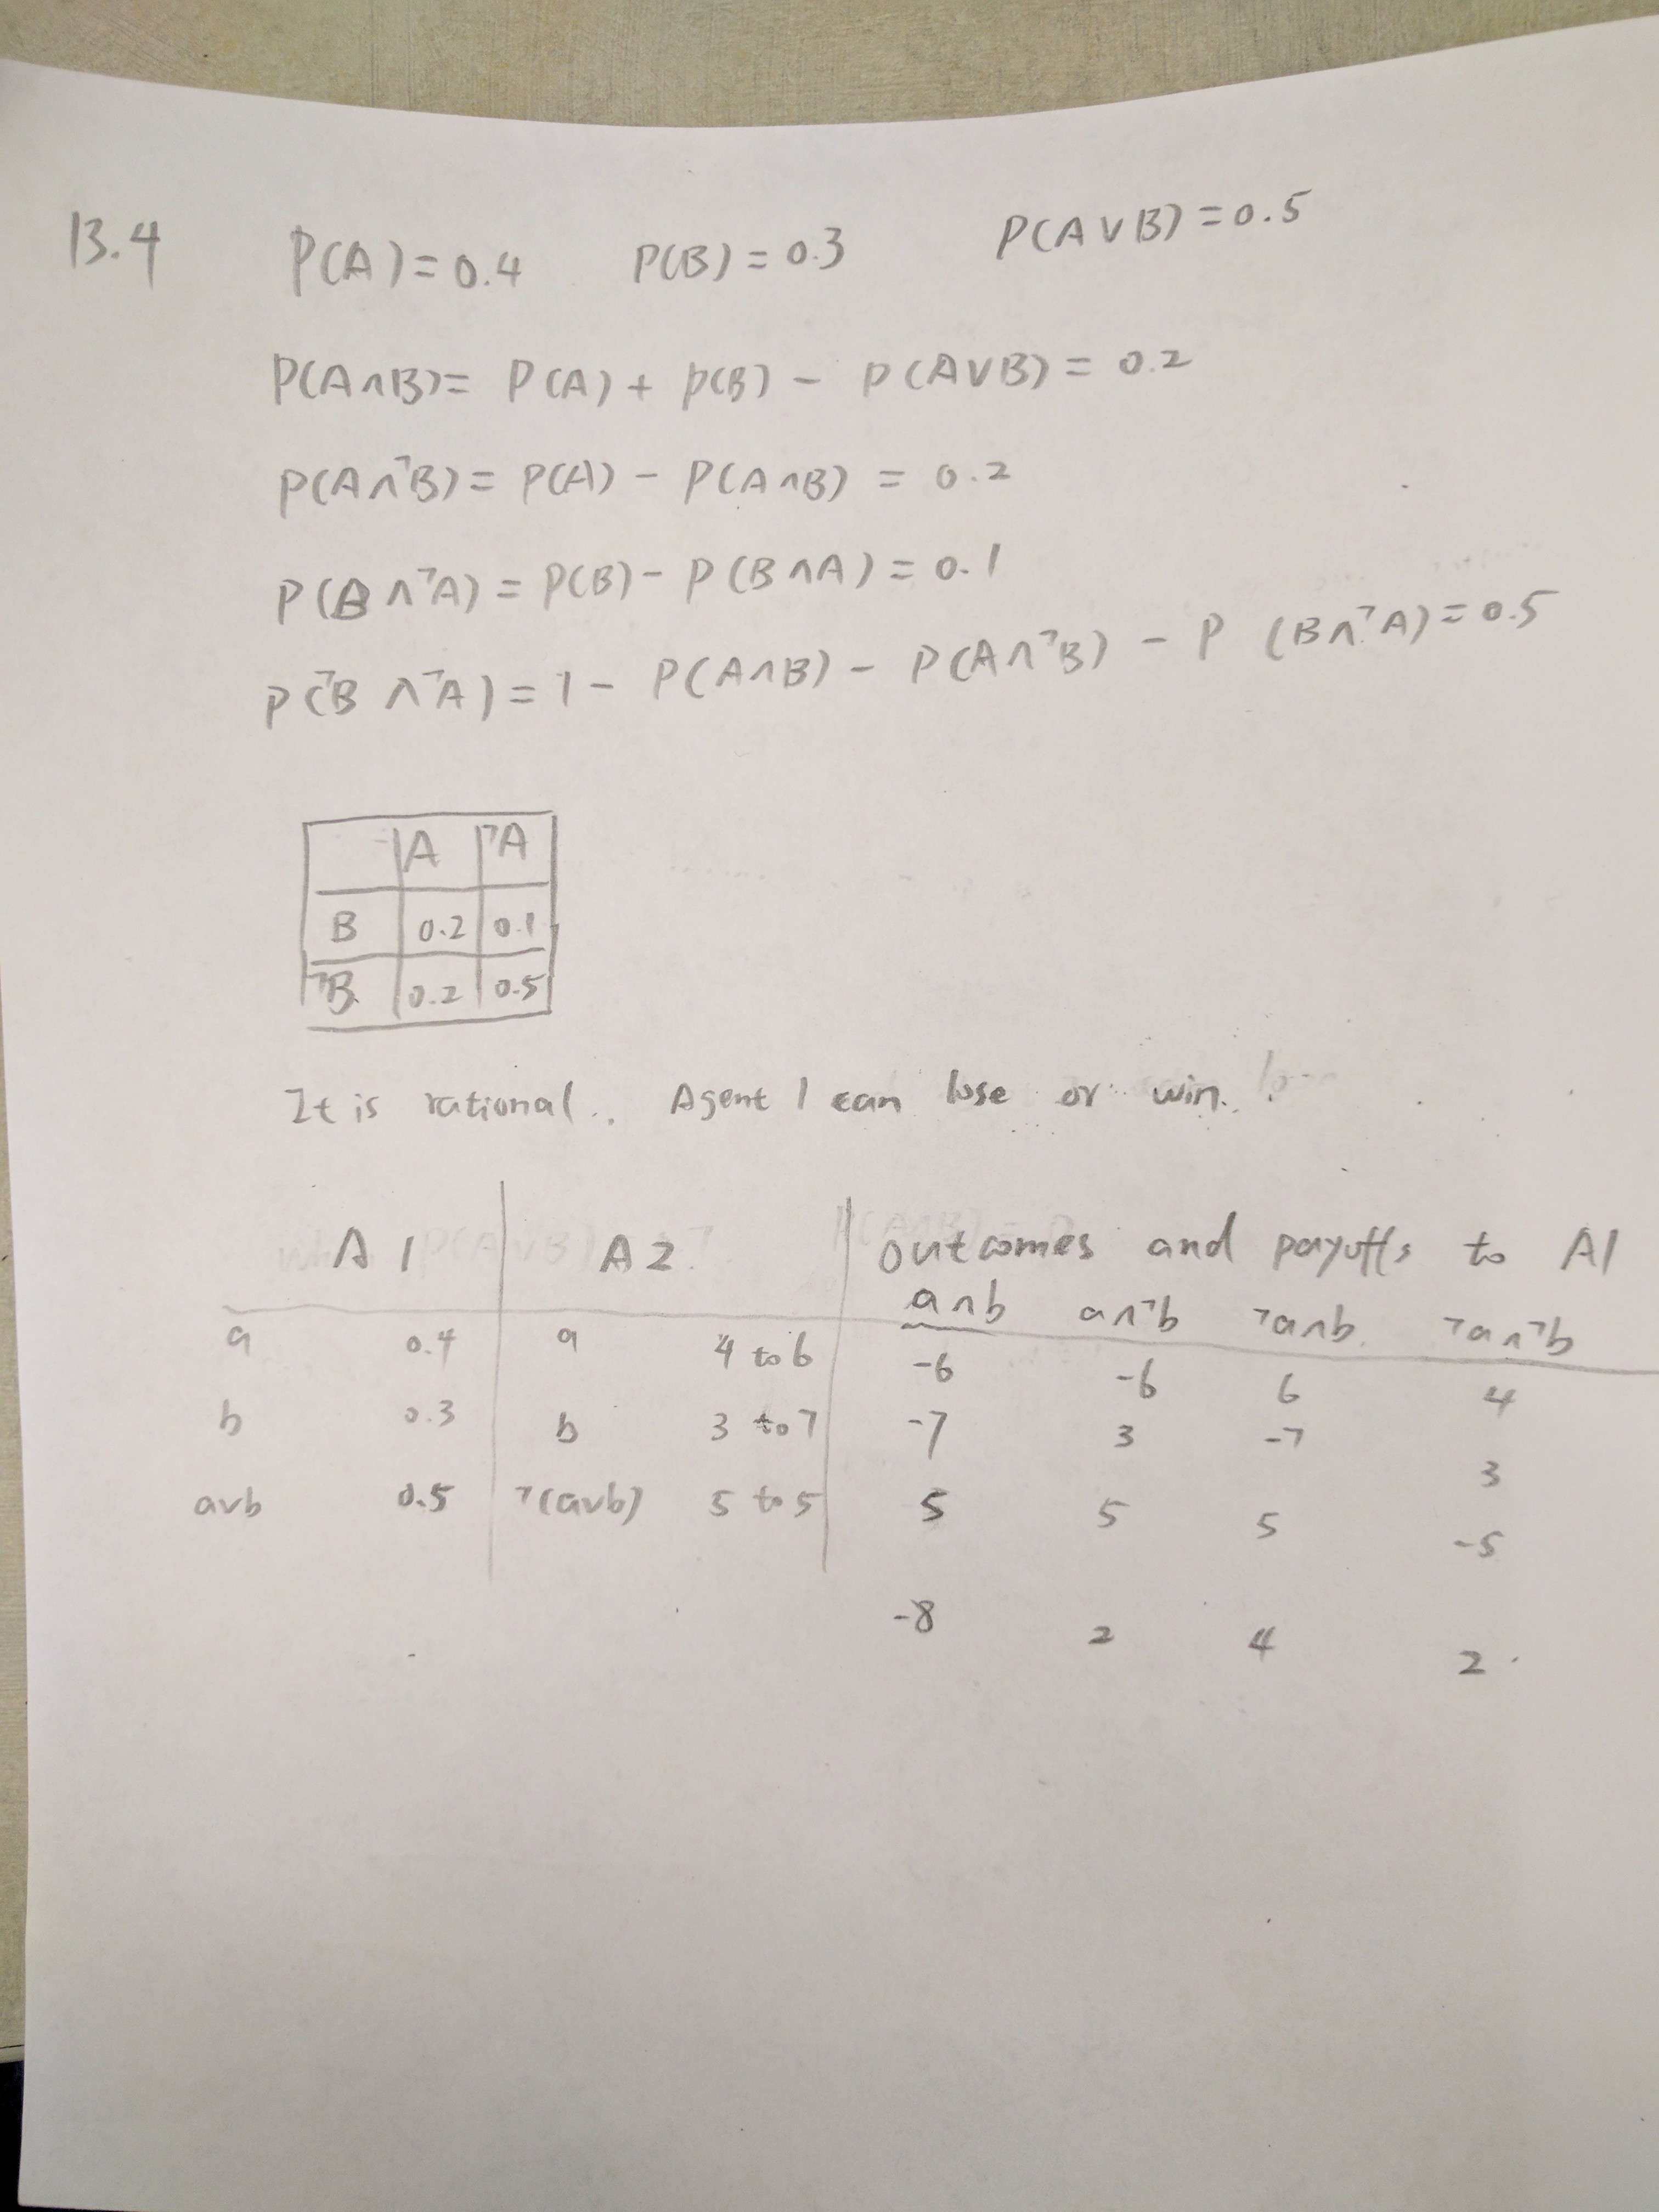 13.4 P(A)=0.4 P(B)=0.3 P(A∨B)=0.5
P(A∧B)= P(A) + P(B) - P(A∨B) = 0.2
P(A∧¬B)= P(A) - P(A∧B) = 0.2
P(B∧¬A) = P(B)- P(B∧A) = 0.1
P(¬B∧¬A)=1- P(A∧B) - P(A∧¬B) - P (B∧¬A)=0.5
A ¬A
B 0.2 0.1
¬B 0.2 0.5
It is rational. Agent 1 can lose or win.
A1 A2 outcomes and payoffs to A1
a∧b a∧¬b ¬a∧b ¬a∧¬b
a 0.4 a 4 to 6 -6 -6 6 4
b 0.3 b 3 to 7 -7 3 -7 3
a∨b 0.5 ¬(a∨b) 5 to 5 5 5 5 -5
-8 2 4 2